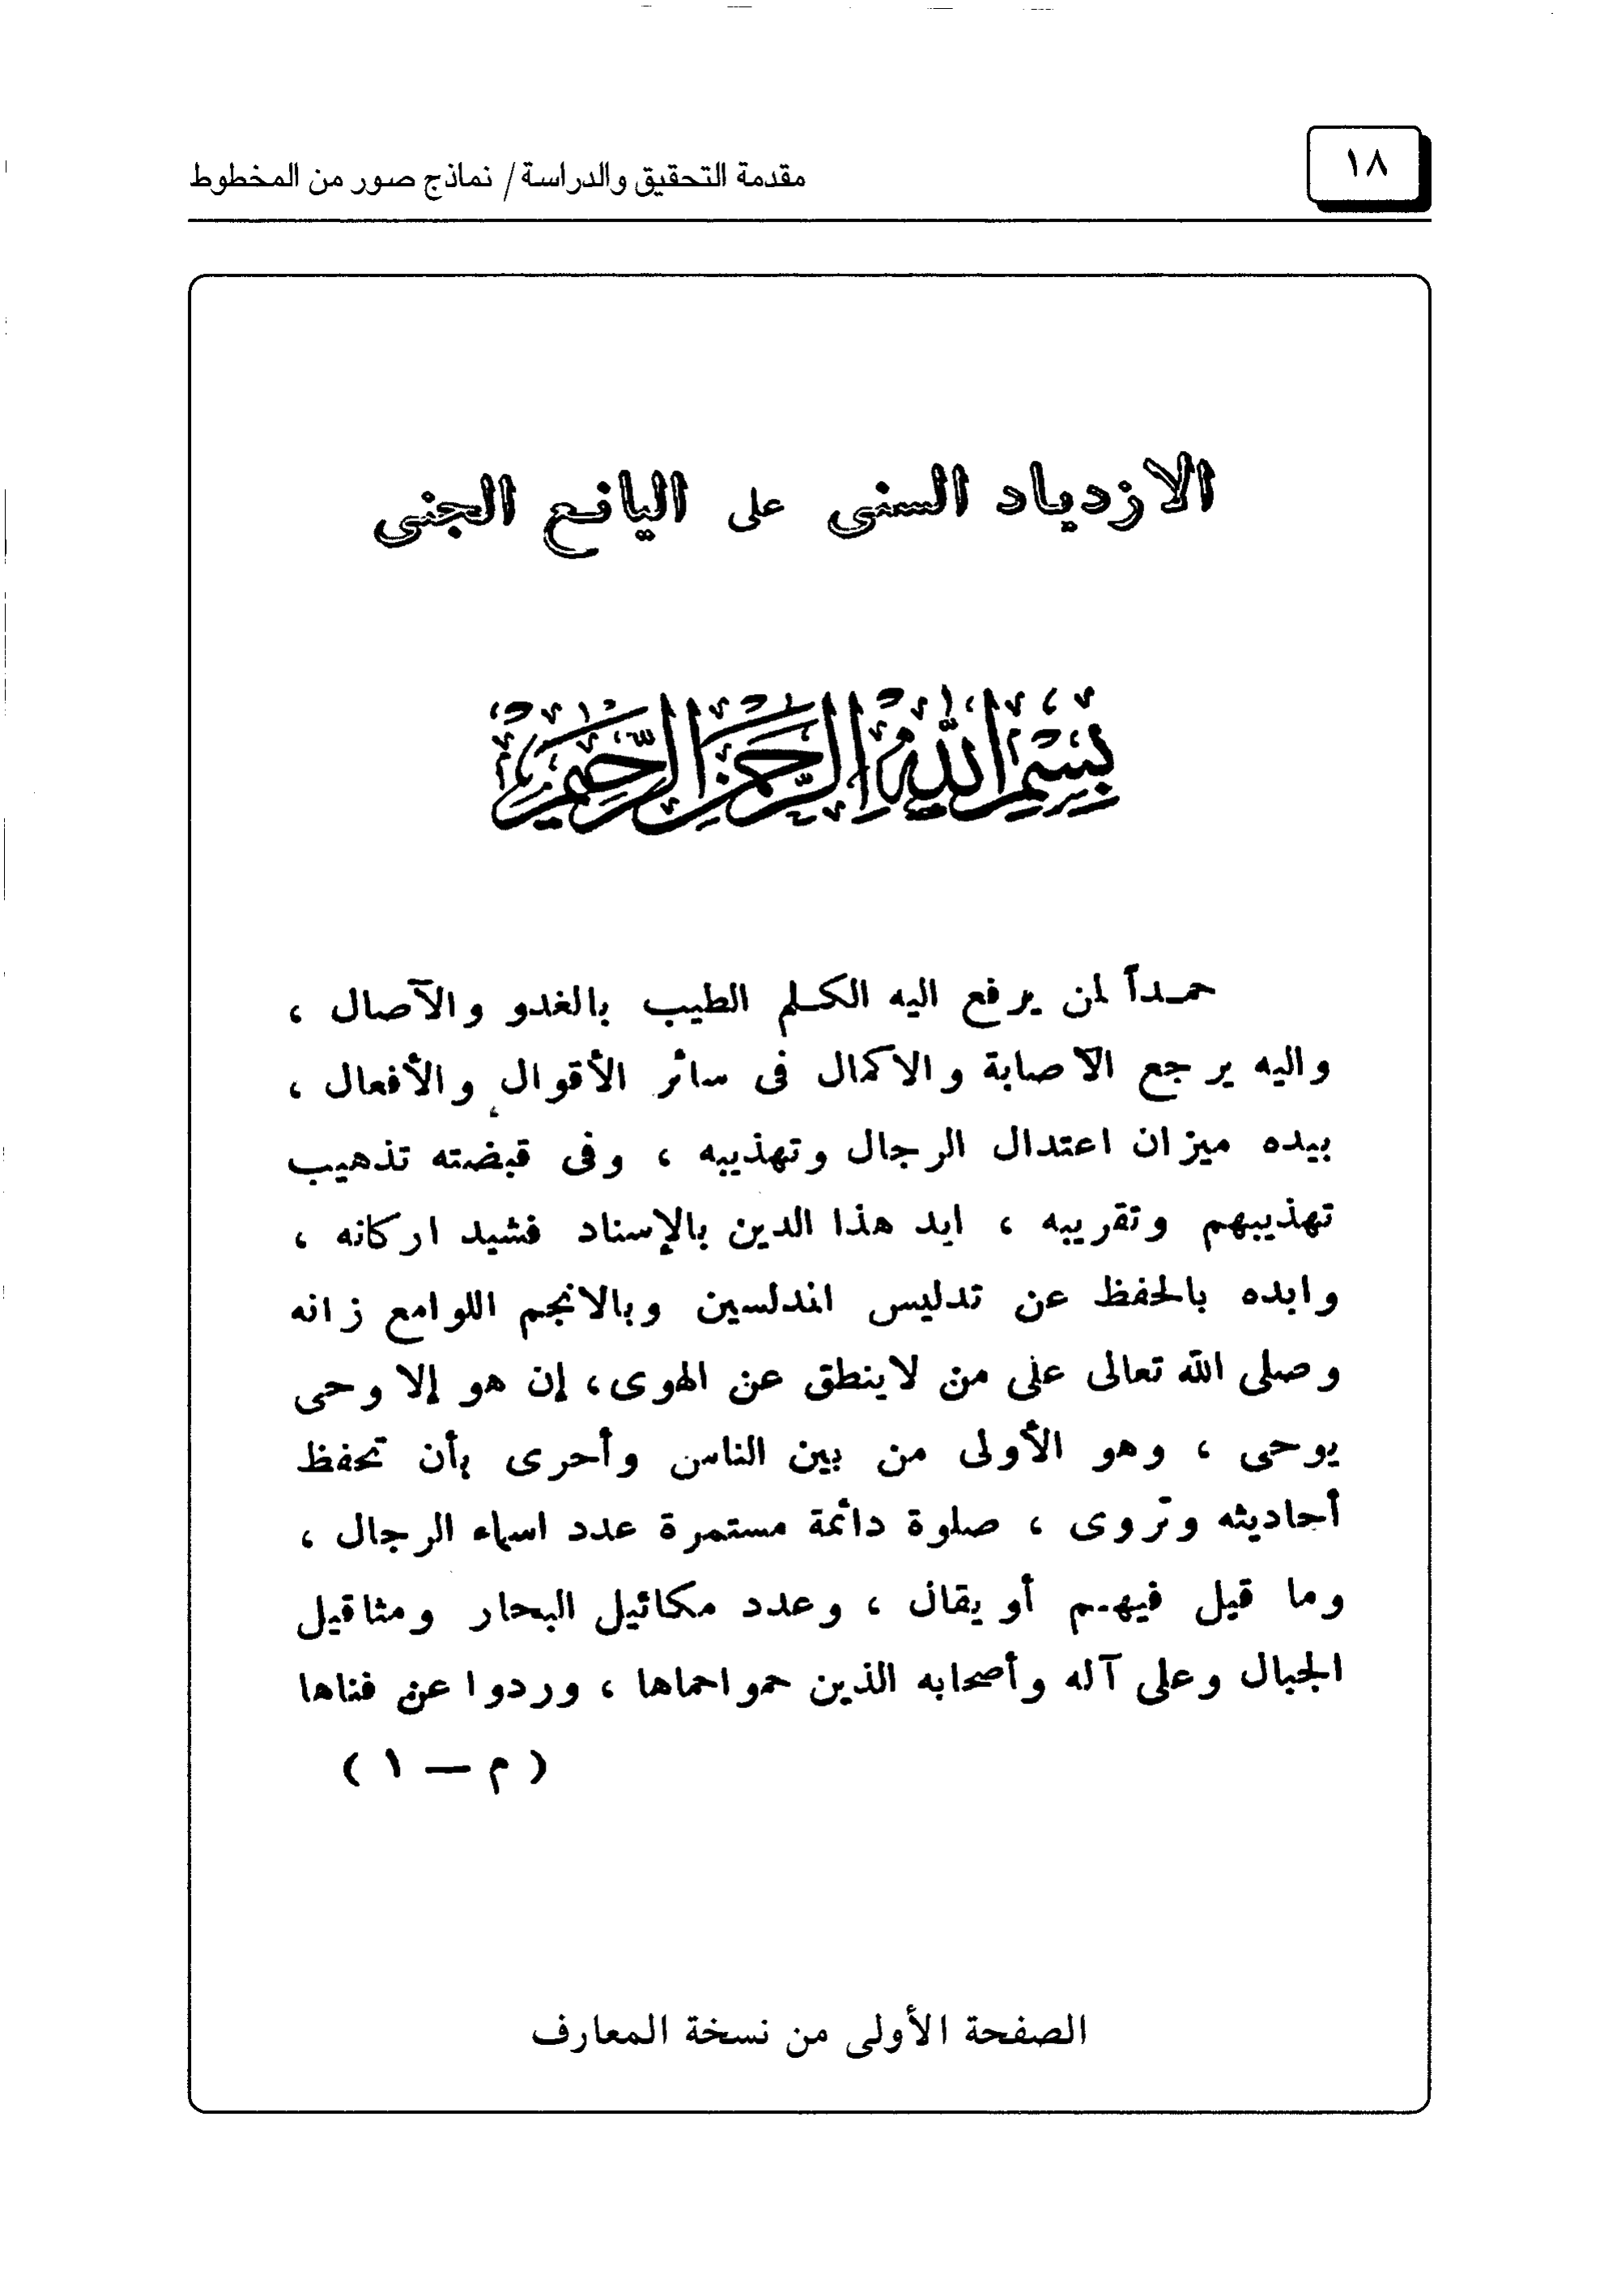 ١٨
مقدمة التحقيق والدراسة / نماذج صور من المخطوط
الازدياد السنى على اليانع الجنى
بسم الله الرحمن الرحيم
حمـداً لمن يرفع اليه الكـلم الطيب بالغدو والآصال ،
واليه يرجع الاصابة والاكمال فى سائر الأقوال والأفعال ،
بيده ميزان اعتدال الرجال وتهذيبه ، وفى قبضته تذهيب
تهذيبهم وتقريبه ، ايد هذا الدين بالإسناد فشيد اركانه ،
وابده بالحفظ عن تدليس المدلسين وبالانجم اللوامع زانه
وصلى الله تعالى على من لاينطق عن الهوى، إن هو إلا وحى
يوحى ، وهو الأولى من بين الناس وأحرى بأن تحفظ
أحاديثه وتروى ، صلوة دائمة مستمرة عدد اسماء الرجال ،
وما قيل فيهـم أو يقال ، وعدد مكائيل البحار ومثاقيل
الجبال وعلى آله وأصحابه الذين حمواحماها ، وردوا عن فناها
( م — ١ )
الصفحة الأولى من نسخة المعارف